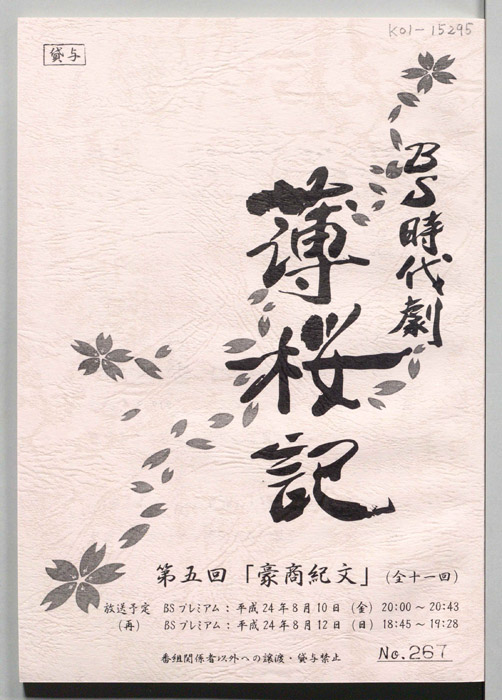 K01-15295
貸与
BS時代劇
薄桜記
第五回「豪商紀文」（全十一回）
放送予定 BSプレミアム：平成24年8月10日（金）20:00～20:43
（再） BSプレミアム：平成24年8月12日（日）18:45～19:28
番組関係者以外への譲渡・貸与禁止
No.267